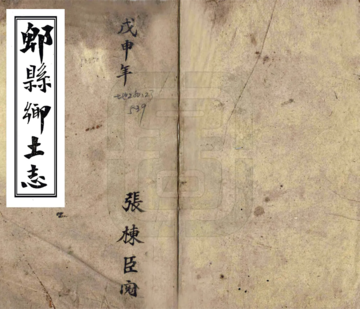 郫縣鄉土志
戊申年
張棟臣閱